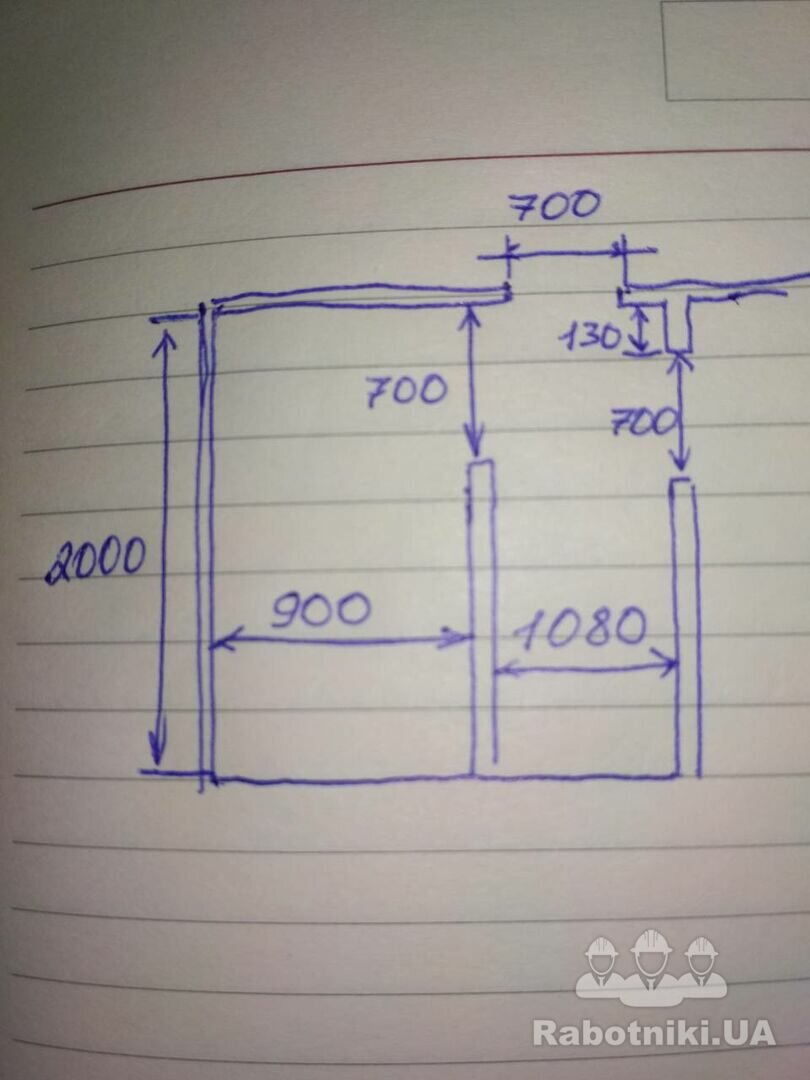 700
130
700
700
2000
900
1080
Rabotniki.UA